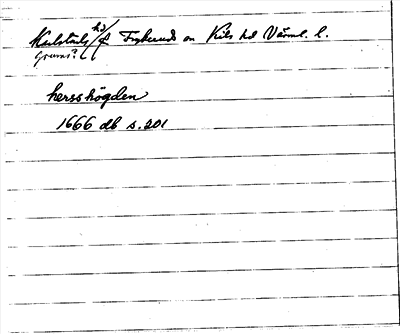 Karlstads hd / f Fryksände sn Kils hd Värml. l.
Grums?
hersshögden
1666 db s. 201